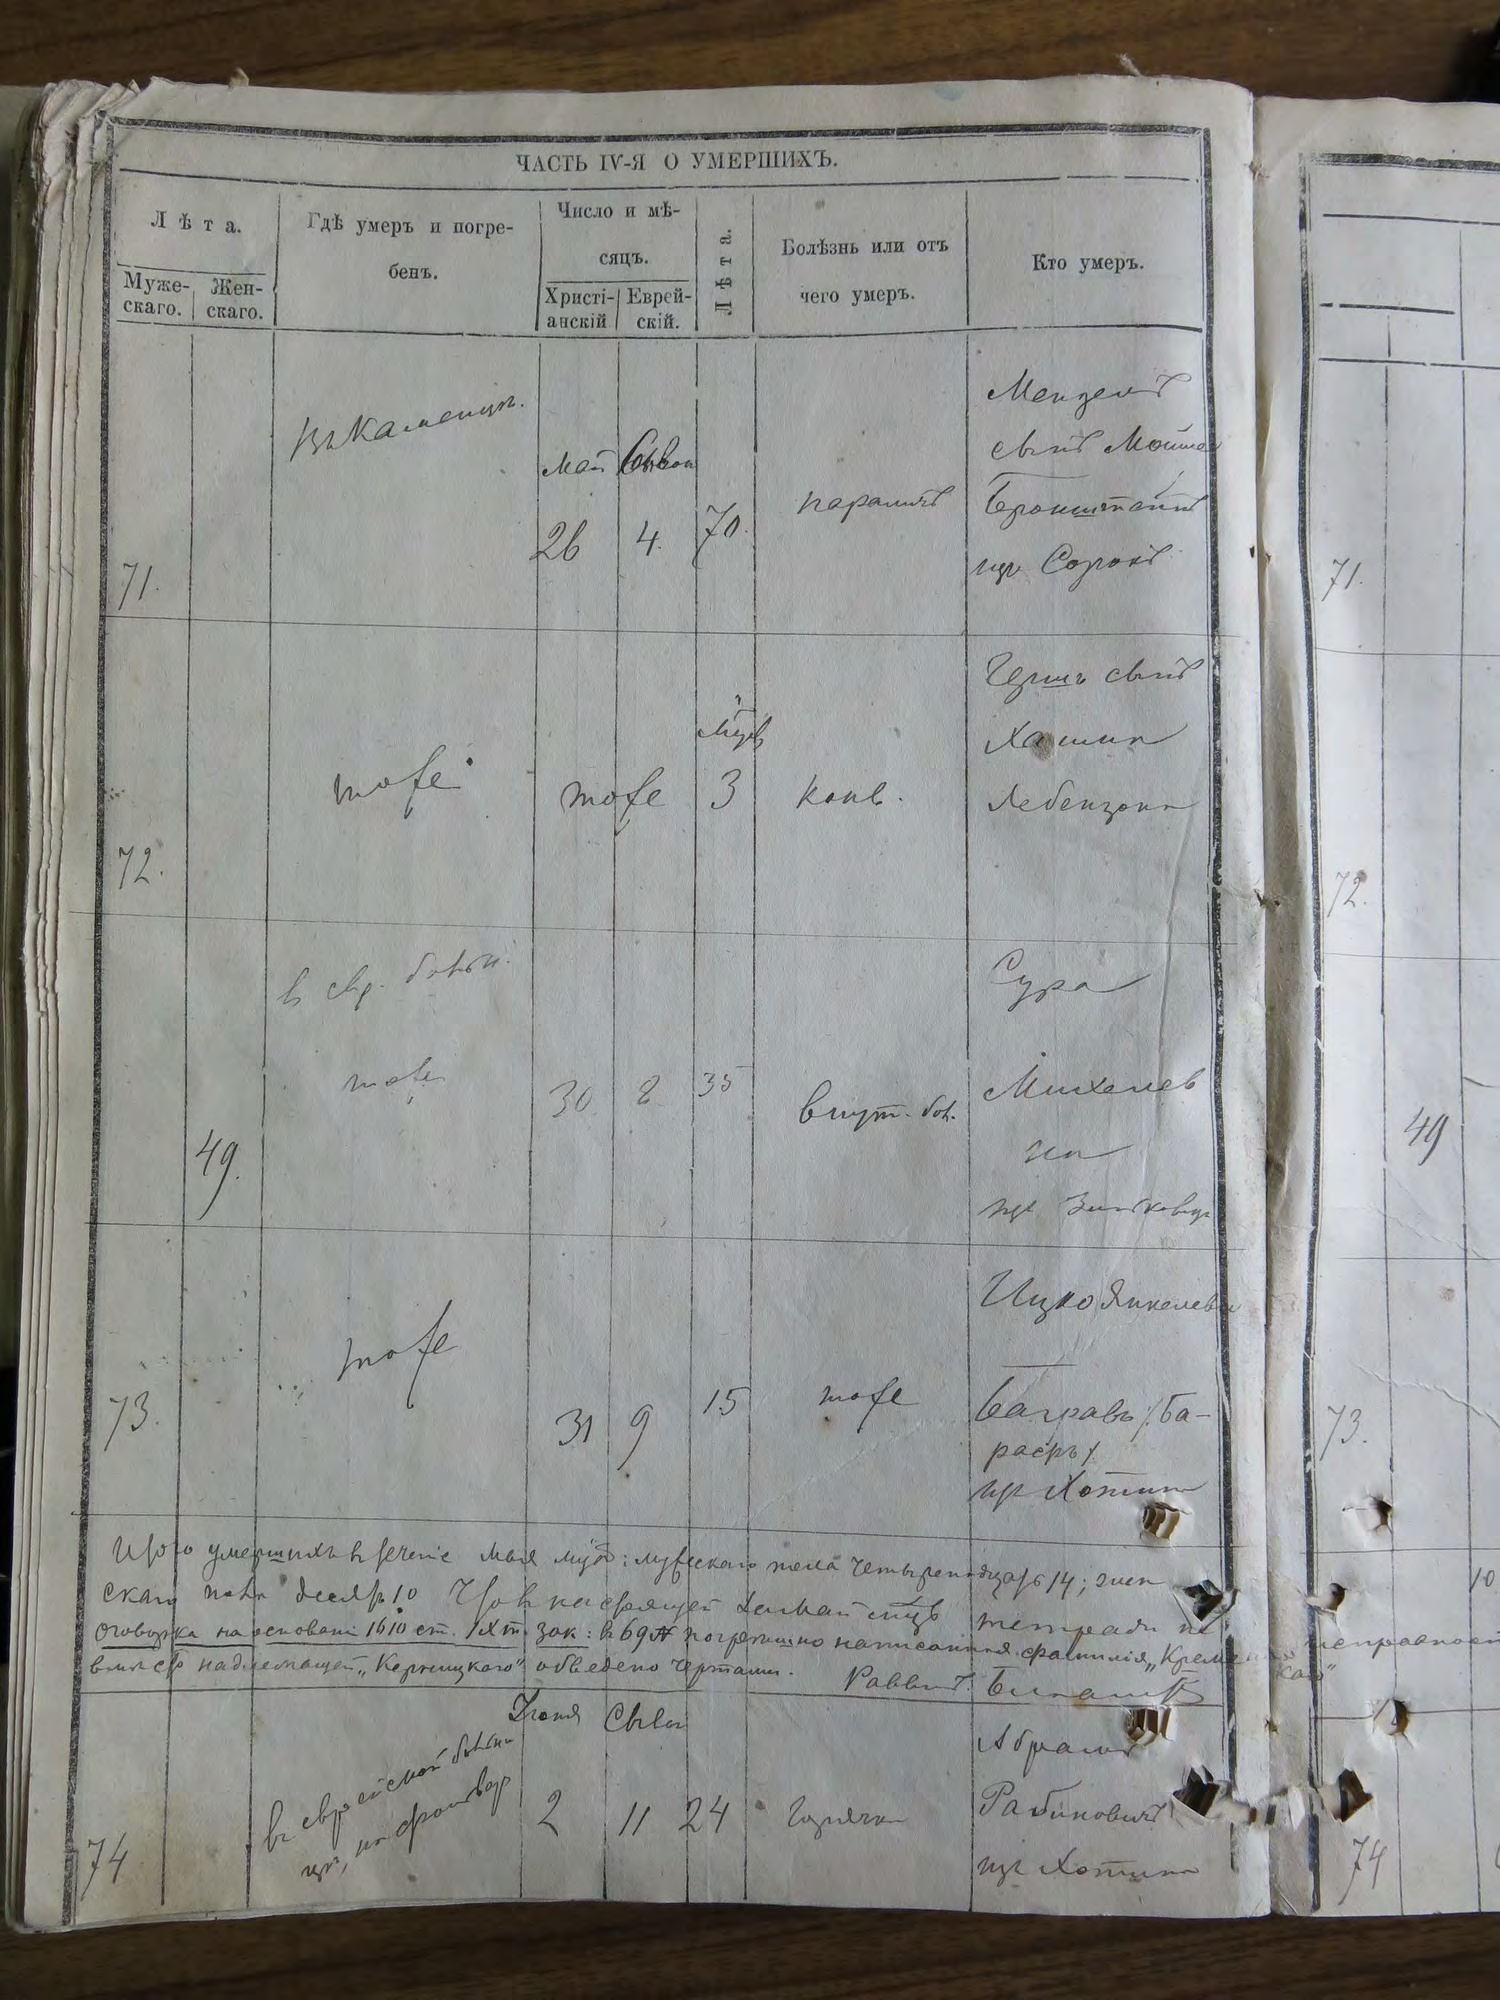 ЧАСТЬ IV-Я О УМЕРШИХЪ.
Лѣта.
Муже-
скаго.
Жен-
скаго.
Гдѣ умеръ и погре-
бенъ.
Число и мѣ-
сяцъ.
Христі-
анскій
Еврей-
скій.
Лѣта.
Болѣзнь или отъ
чего умеръ.
Кто умеръ.
71.
въ Каменцѣ.
май Сыван
26 4. 70.
параличъ
Мендель
сынъ Мошка
Бронштейнъ
изъ Сорокъ
72.
тоже
тоже
3
кокл.
Гершъ сынъ
Хаима
Лебензона
49.
в евр. больн.
тоже
30 8 35
внут. бол.
Сура
Михелев
на
изъ
73.
тоже
31 9 15
тоже
Ицко Янкелев
Баграв /:Ба-
расръ/
изъ Хотина
Итого умершихъ в течение мая : мужескаго пола четырнадцать 14; жен
скаго пола десять 10 Что в настоящей за май мцъ тетради не
оговорка на основани 1610 ст. IX т. зак: в 69 № погрешно написанная фамилія „Кремениц
вместо надлежащей „Керницкого" обведено чертами.
Раввинъ
Июня Сыван
74
въ еврейской больни
2 11 24
горячка
Абрамъ
Рабиновичъ
изъ Хотина
71.
72.
49
73.
10
74